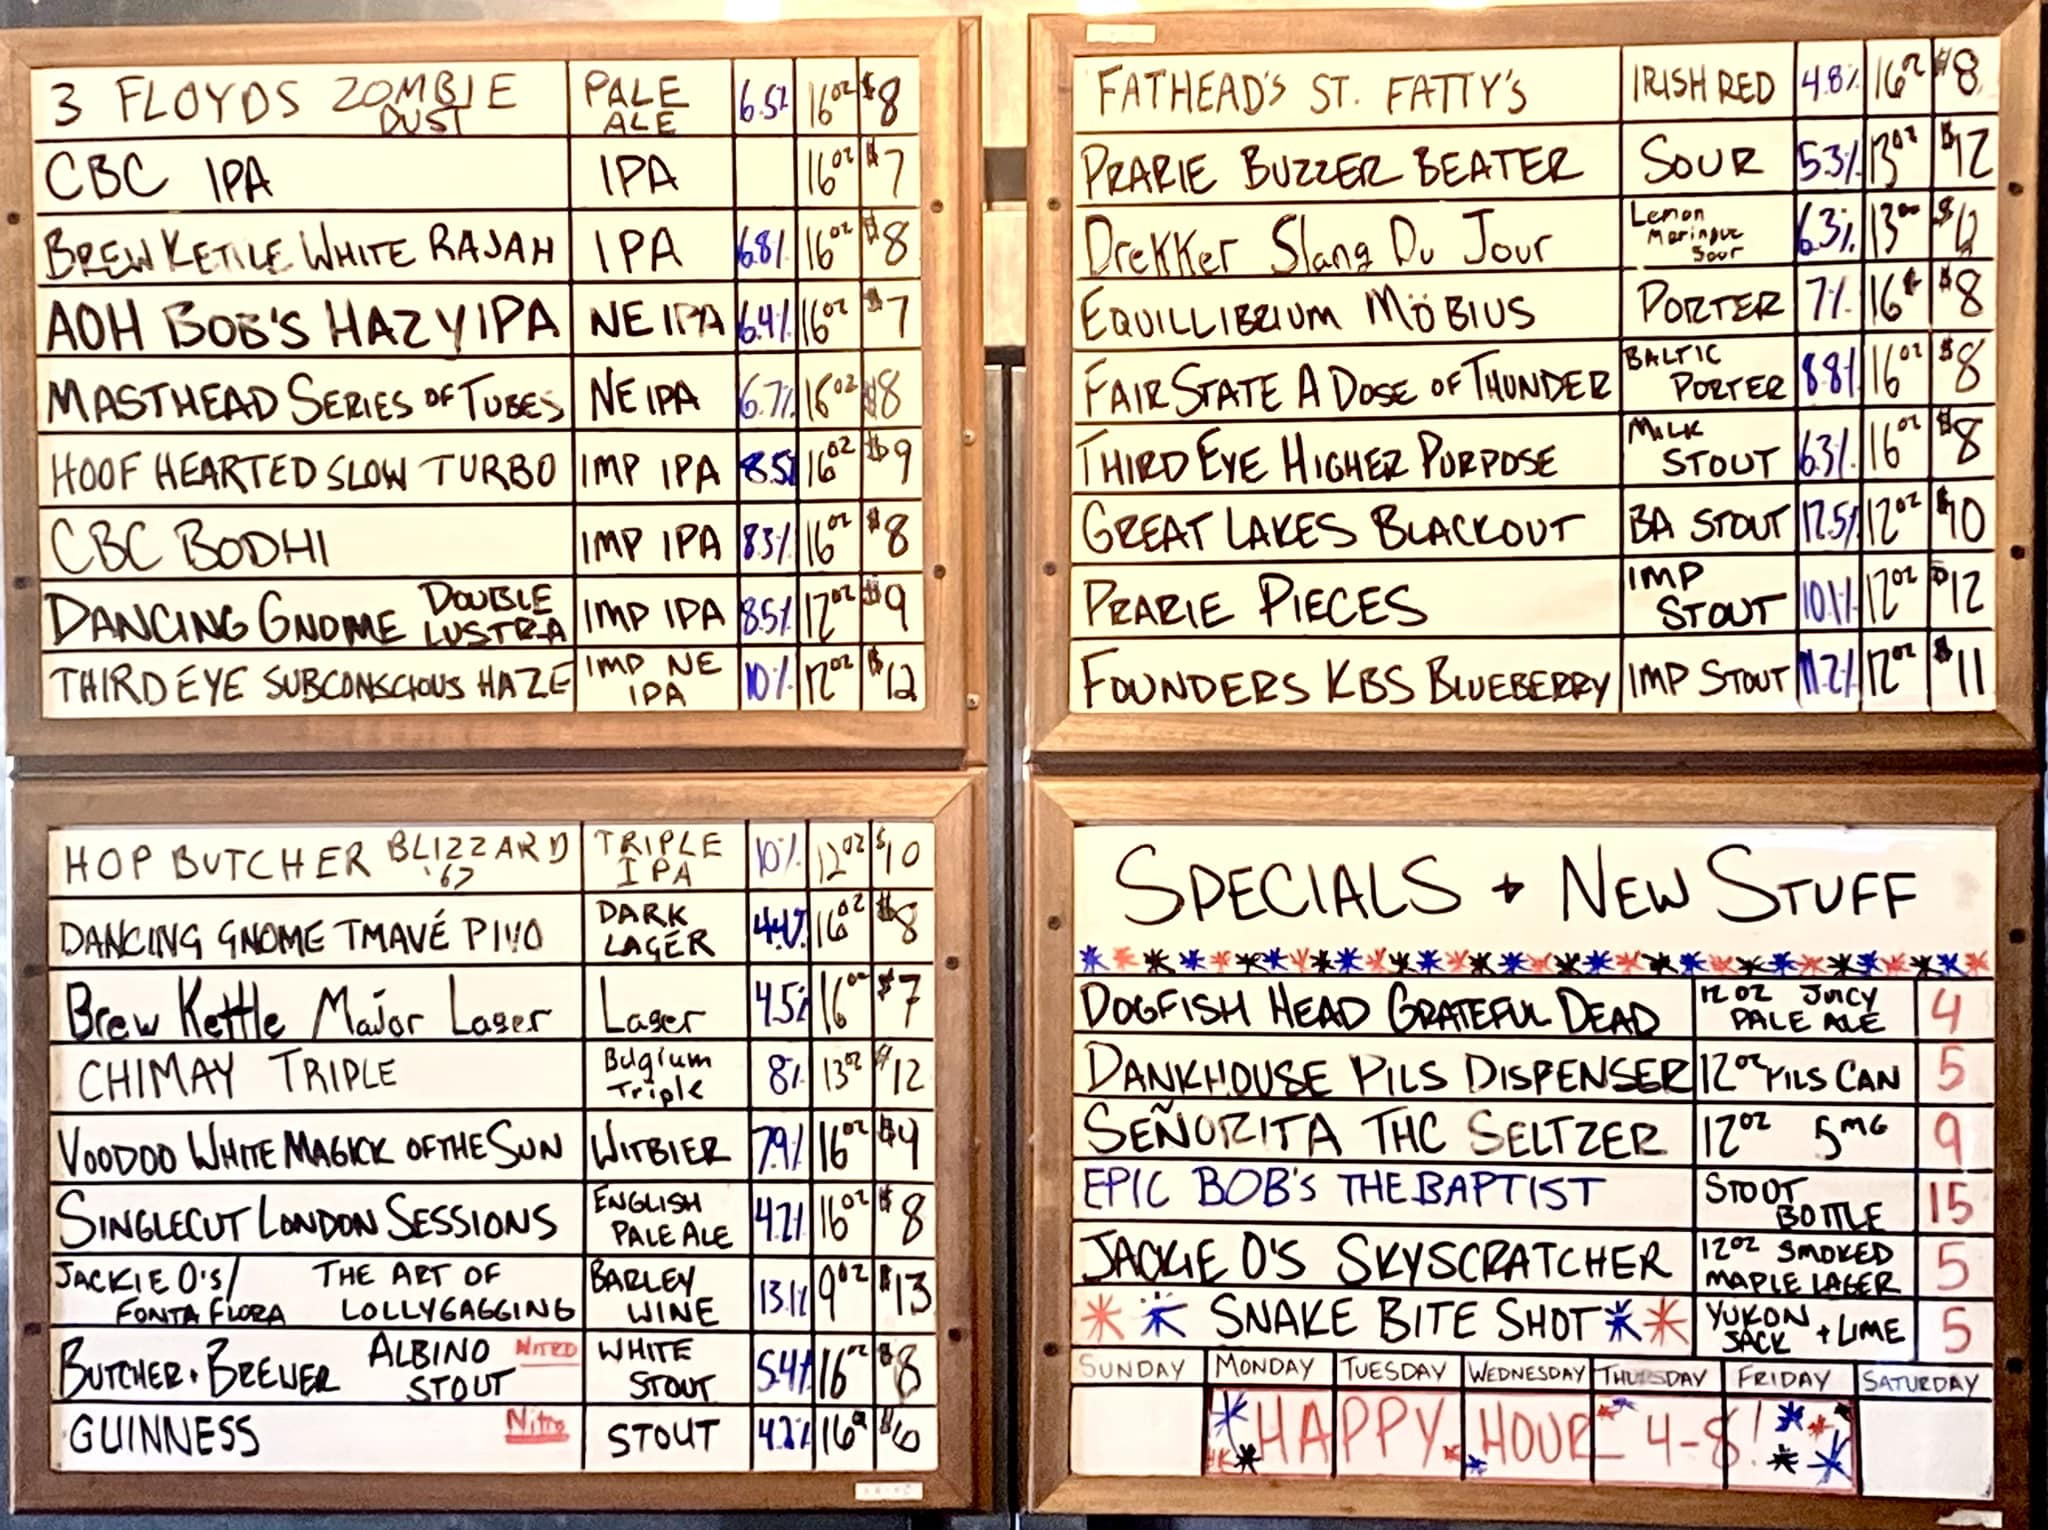 3 FLOYDS ZOMBIE DUST PALE ALE 6.5% 16oz $8
CBC IPA IPA 16oz $7
BREW KETTLE WHITE RAJAH IPA 6.8% 16oz $8
AOH BOB'S HAZY IPA NE IPA 6.4% 16oz $7
MASTHEAD SERIES OF TUBES NE IPA 6.7% 16oz $8
HOOF HEARTED SLOW TURBO IMP IPA 8.5% 16oz $9
CBC BODHI IMP IPA 8.3% 16oz $8
DANCING GNOME DOUBLE LUSTRA IMP IPA 8.5% 12oz $9
THIRD EYE SUBCONSCIOUS HAZE IMP NE IPA 10% 12oz $12
FATHEAD'S ST. FATTY'S IRISH RED 4.8% 16oz $8
PRARIE BUZZER BEATER SOUR 5.3% 13oz $12
Drekker Slang Du Jour Lemon Maringue Sour 6.3% 13oz
EQUILLIBRIUM MÖBIUS PORTER 7% 16oz $8
FAIR STATE A DOSE OF THUNDER BALTIC PORTER 8.8% 16oz $8
THIRD EYE HIGHER PURPOSE MILK STOUT 6.3% 16oz $8
GREAT LAKES BLACKOUT BA STOUT 12.5% 12oz $10
PRARIE PIECES IMP STOUT 10.1% 12oz $12
FOUNDERS KBS BLUEBERRY IMP STOUT 11.2% 12oz $11
HOP BUTCHER BLIZZARD '67 TRIPLE IPA 10% 12oz $10
DANCING GNOME TMAVÉ PIVO DARK LAGER 4.4% 16oz $8
Brew Kettle Major Lager Lager 4.5% 16oz $7
CHIMAY TRIPLE Belgium Triple 8% 13oz $12
VOODOO WHITE MAGICK OF THE SUN WITBIER 7.9% 16oz $9
SINGLECUT LONDON SESSIONS ENGLISH PALE ALE 4.2% 16oz $8
JACKIE O'S/ FONTA FLORA THE ART OF LOLLYGAGGING BARLEY WINE 13.1% 9oz $13
BUTCHER + BREWER ALBINO STOUT NITRO WHITE STOUT 5.4% 16oz $8
GUINNESS Nitro STOUT 4.2% 16oz $6
SPECIALS + NEW STUFF
DOGFISH HEAD GRATEFUL DEAD 12 OZ JUICY PALE ALE 4
DANKHOUSE PILS DISPENSER 12oz PILS CAN 5
SEÑORITA THC SELTZER 12oz 5MG 9
EPIC BOB'S THE BAPTIST STOUT BOTTLE 15
JACKIE O'S SKYSCRATCHER 12oz SMOKED MAPLE LAGER 5
SNAKE BITE SHOT YUKON JACK + LIME 5
SUNDAY MONDAY TUESDAY WEDNESDAY THURSDAY FRIDAY SATURDAY
HAPPY HOUR 4-8!